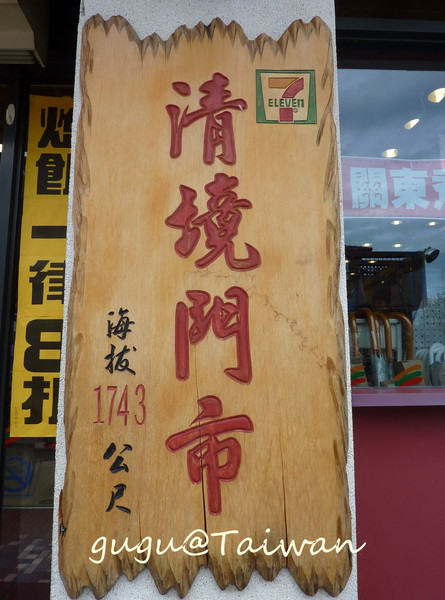 清境門市
7
ELEVEn
海拔
1743
公尺
一律8折
關東
gugu@Taiwan